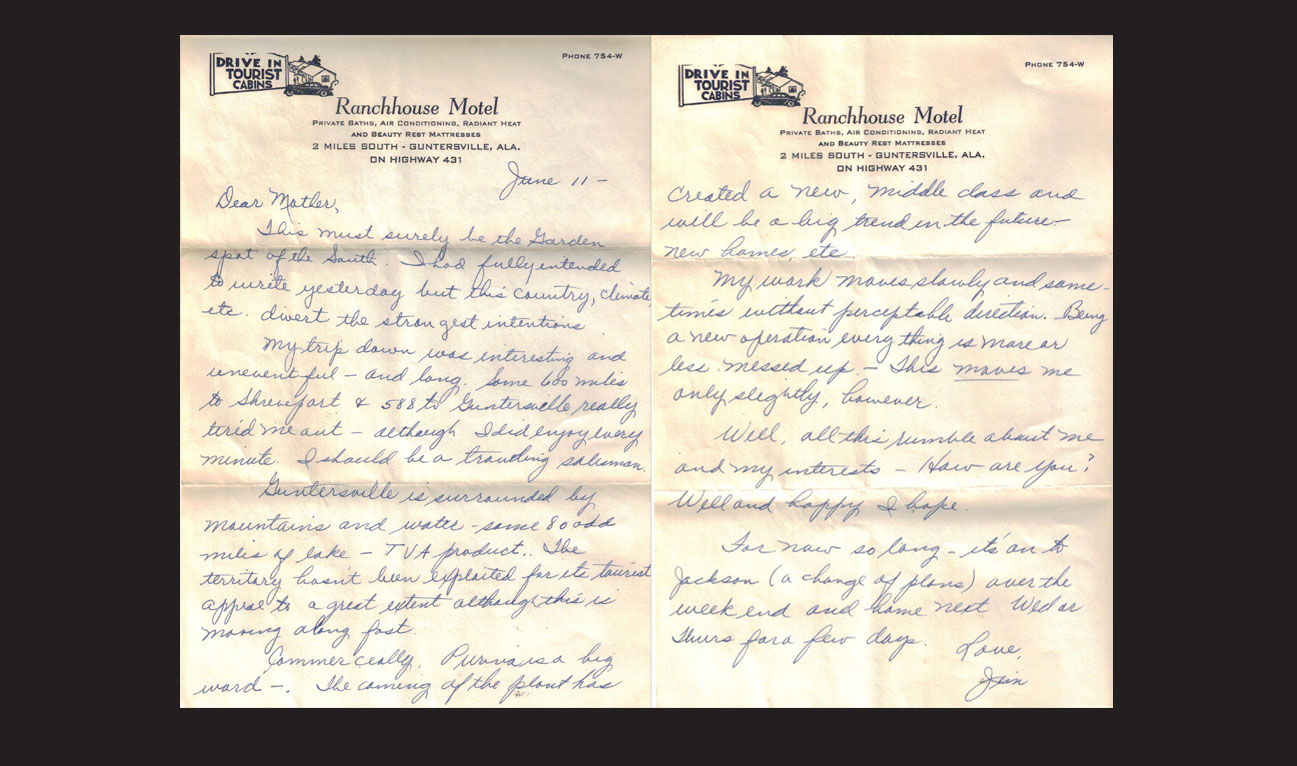 PHONE 754-W
DRIVE IN
TOURIST
CABINS
Ranchhouse Motel
PRIVATE BATHS, AIR CONDITIONING, RADIANT HEAT
AND BEAUTY REST MATTRESSES
2 MILES SOUTH - GUNTERSVILLE, ALA.
ON HIGHWAY 431
June 11 —
Dear Mother,
This must surely be the Garden
spot of the South. I had fully intended
to write yesterday but this country, climate
etc. divert the strongest intentions.
My trip down was interesting and
uneventful — and long. Some 600 miles
to Shreveport & 588 to Guntersville really
tired me out — although I did enjoy every
minute. I should be a traveling salesman.
Guntersville is surrounded by
mountains and water - some 80 odd
miles of lake — TVA product.. The
territory hasn't been exploited for its tourist
appeal to a great extent although this is
moving along fast.
Commercially, Purina is a big
word —. The coming of the plant has
PHONE 754-W
DRIVE IN
TOURIST
CABINS
Ranchhouse Motel
PRIVATE BATHS, AIR CONDITIONING, RADIANT HEAT
AND BEAUTY REST MATTRESSES
2 MILES SOUTH - GUNTERSVILLE, ALA.
ON HIGHWAY 431
created a new, middle class and
will be a big trend in the future —
new homes, etc.
My work moves slowly and some-
times without perceptable direction. Being
a new operation everything is more or
less messed up. — This moves me
only slightly, however.
Well, all this rumble about me
and my interests — How are you?
Well and happy I hope.
For now so long — it's on to
Jackson (a change of plans) over the
week end and home next Wed or
Thurs for a few days.
Love,
Jim